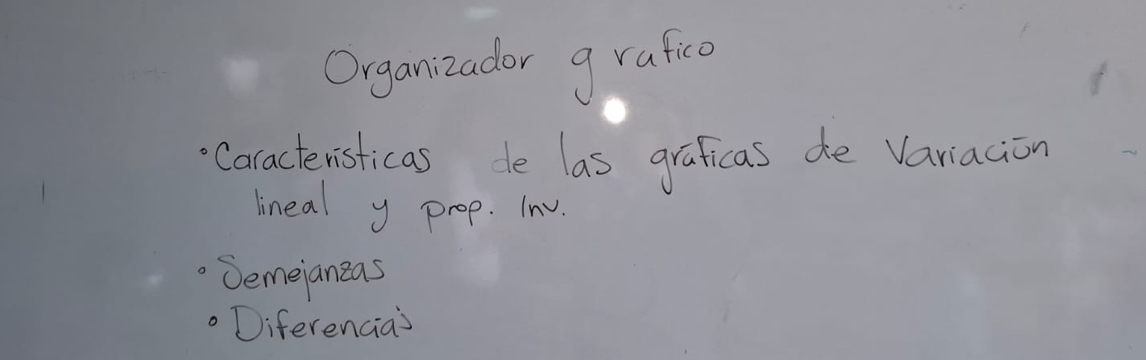 Organizador grafico
• Características de las gráficas de Variación
lineal y prop. Inv.
• Semejanzas
• Diferencias